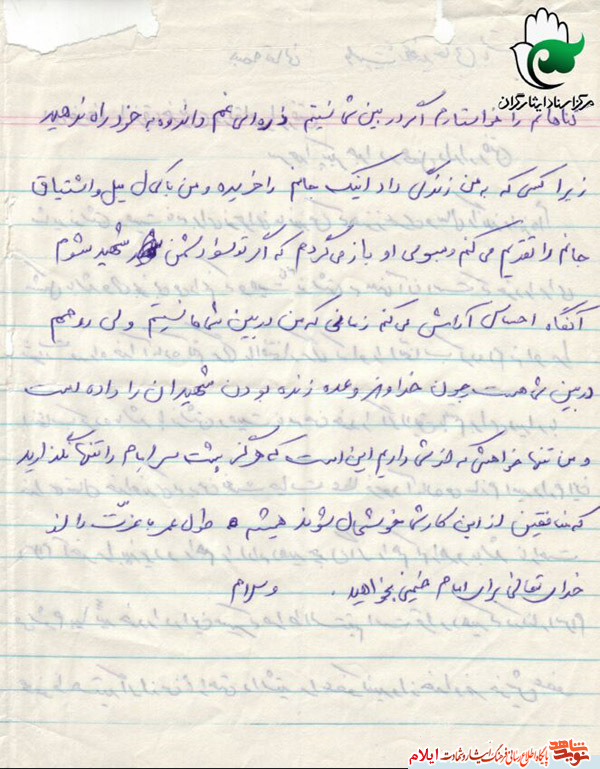 مرکز اسناد ایثارگران
گناهانم را خواستارم اگر در بین شما نیستم ذره‌ای غم و اندوه به خود راه ندهید
زیرا کسی که به من زندگی داد اینک جانم را خریده و من با کمال میل و اشتیاق
جانم را تقدیم می کنم و بسوی او باز می گردم که اگر توسط دشمن شهید شوم
آنگاه احساس آرامش می کنم زمانی که من در بین شما نیستم ولی روحم
در بین شما هست چون خداوند وعده زنده بودن شهیدان را داده است
و من تنها خواهشی که از شما دارم این است که هرگز پشت سر امام را تنها نگذارید
که منافقین از این کار شما خوشحال شوند همیشه طول عمر با عزت را از
خدای تعالی برای امام خمینی بخواهید . والسلام
نوید شاهد پایگاه اطلاع رسانی فرهنگ ایثار و شهادت ایلام